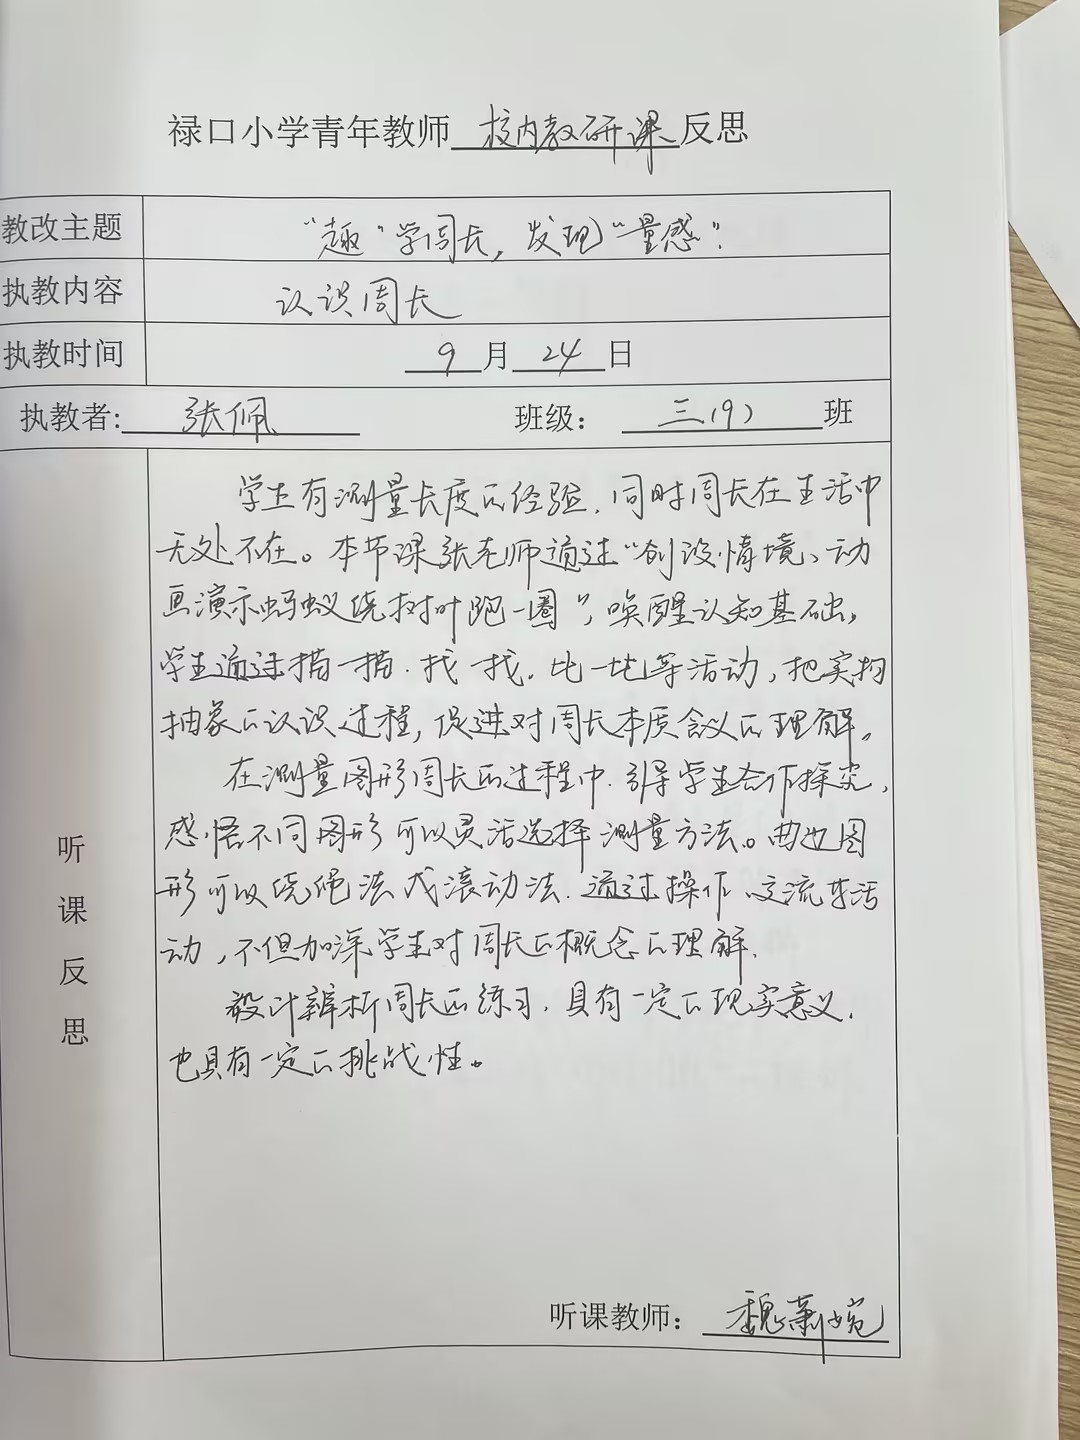 禄口小学青年教师校内教研课反思
教改主题 “趣”学周长，发现“量感”.
执教内容 认识周长
执教时间 9月24日
执教者：张佩 班级：三(9)班
学生有测量长度的经验，同时周长在生活中
无处不在。本节课张老师通过“创设情境、动
画演示蚂蚁绕树叶跑一圈”，唤醒认知基础，
学生通过描一描.找一找.比一比等活动，把实物
抽象的认识过程，促进对周长本质含义的理解。
在测量图形周长的过程中.引导学生合作探究，
感悟不同图形可以灵活选择测量方法。曲边图
形可以绕绳法或滚动法.通过操作、交流等活
动，不但加深学生对周长的概念的理解.
设计辨析周长的练习，具有一定的现实意义.
也具有一定的挑战性。
听课反思
听课教师：魏萧婉